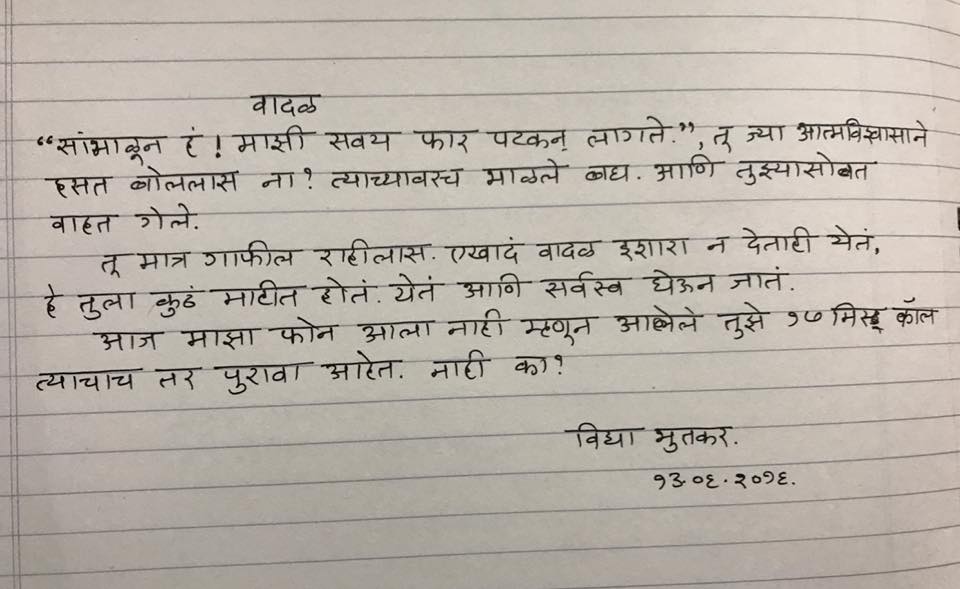 वादळ
“सांभाळून हं! माझी सवय फार पटकन् लागते.”, तू ज्या आत्मविश्वासाने
हसत बोललास ना? त्याच्यावरच भाळले बघ. आणि तुझ्यासोबत
वाहत गेले.
तू मात्र गाफील राहीलास. एखादं वादळ इशारा न देताही येतं,
हे तुला कुठं माहीत होतं. येतं आणि सर्वस्व घेऊन जातं.
आज माझा फोन आला नाही म्हणून आलेले तुझे १७ मिस्ड् कॉल
त्याचाच तर पुरावा आहेत. नाही का?
विद्या भुतकर.
१३.०६.२०१६.